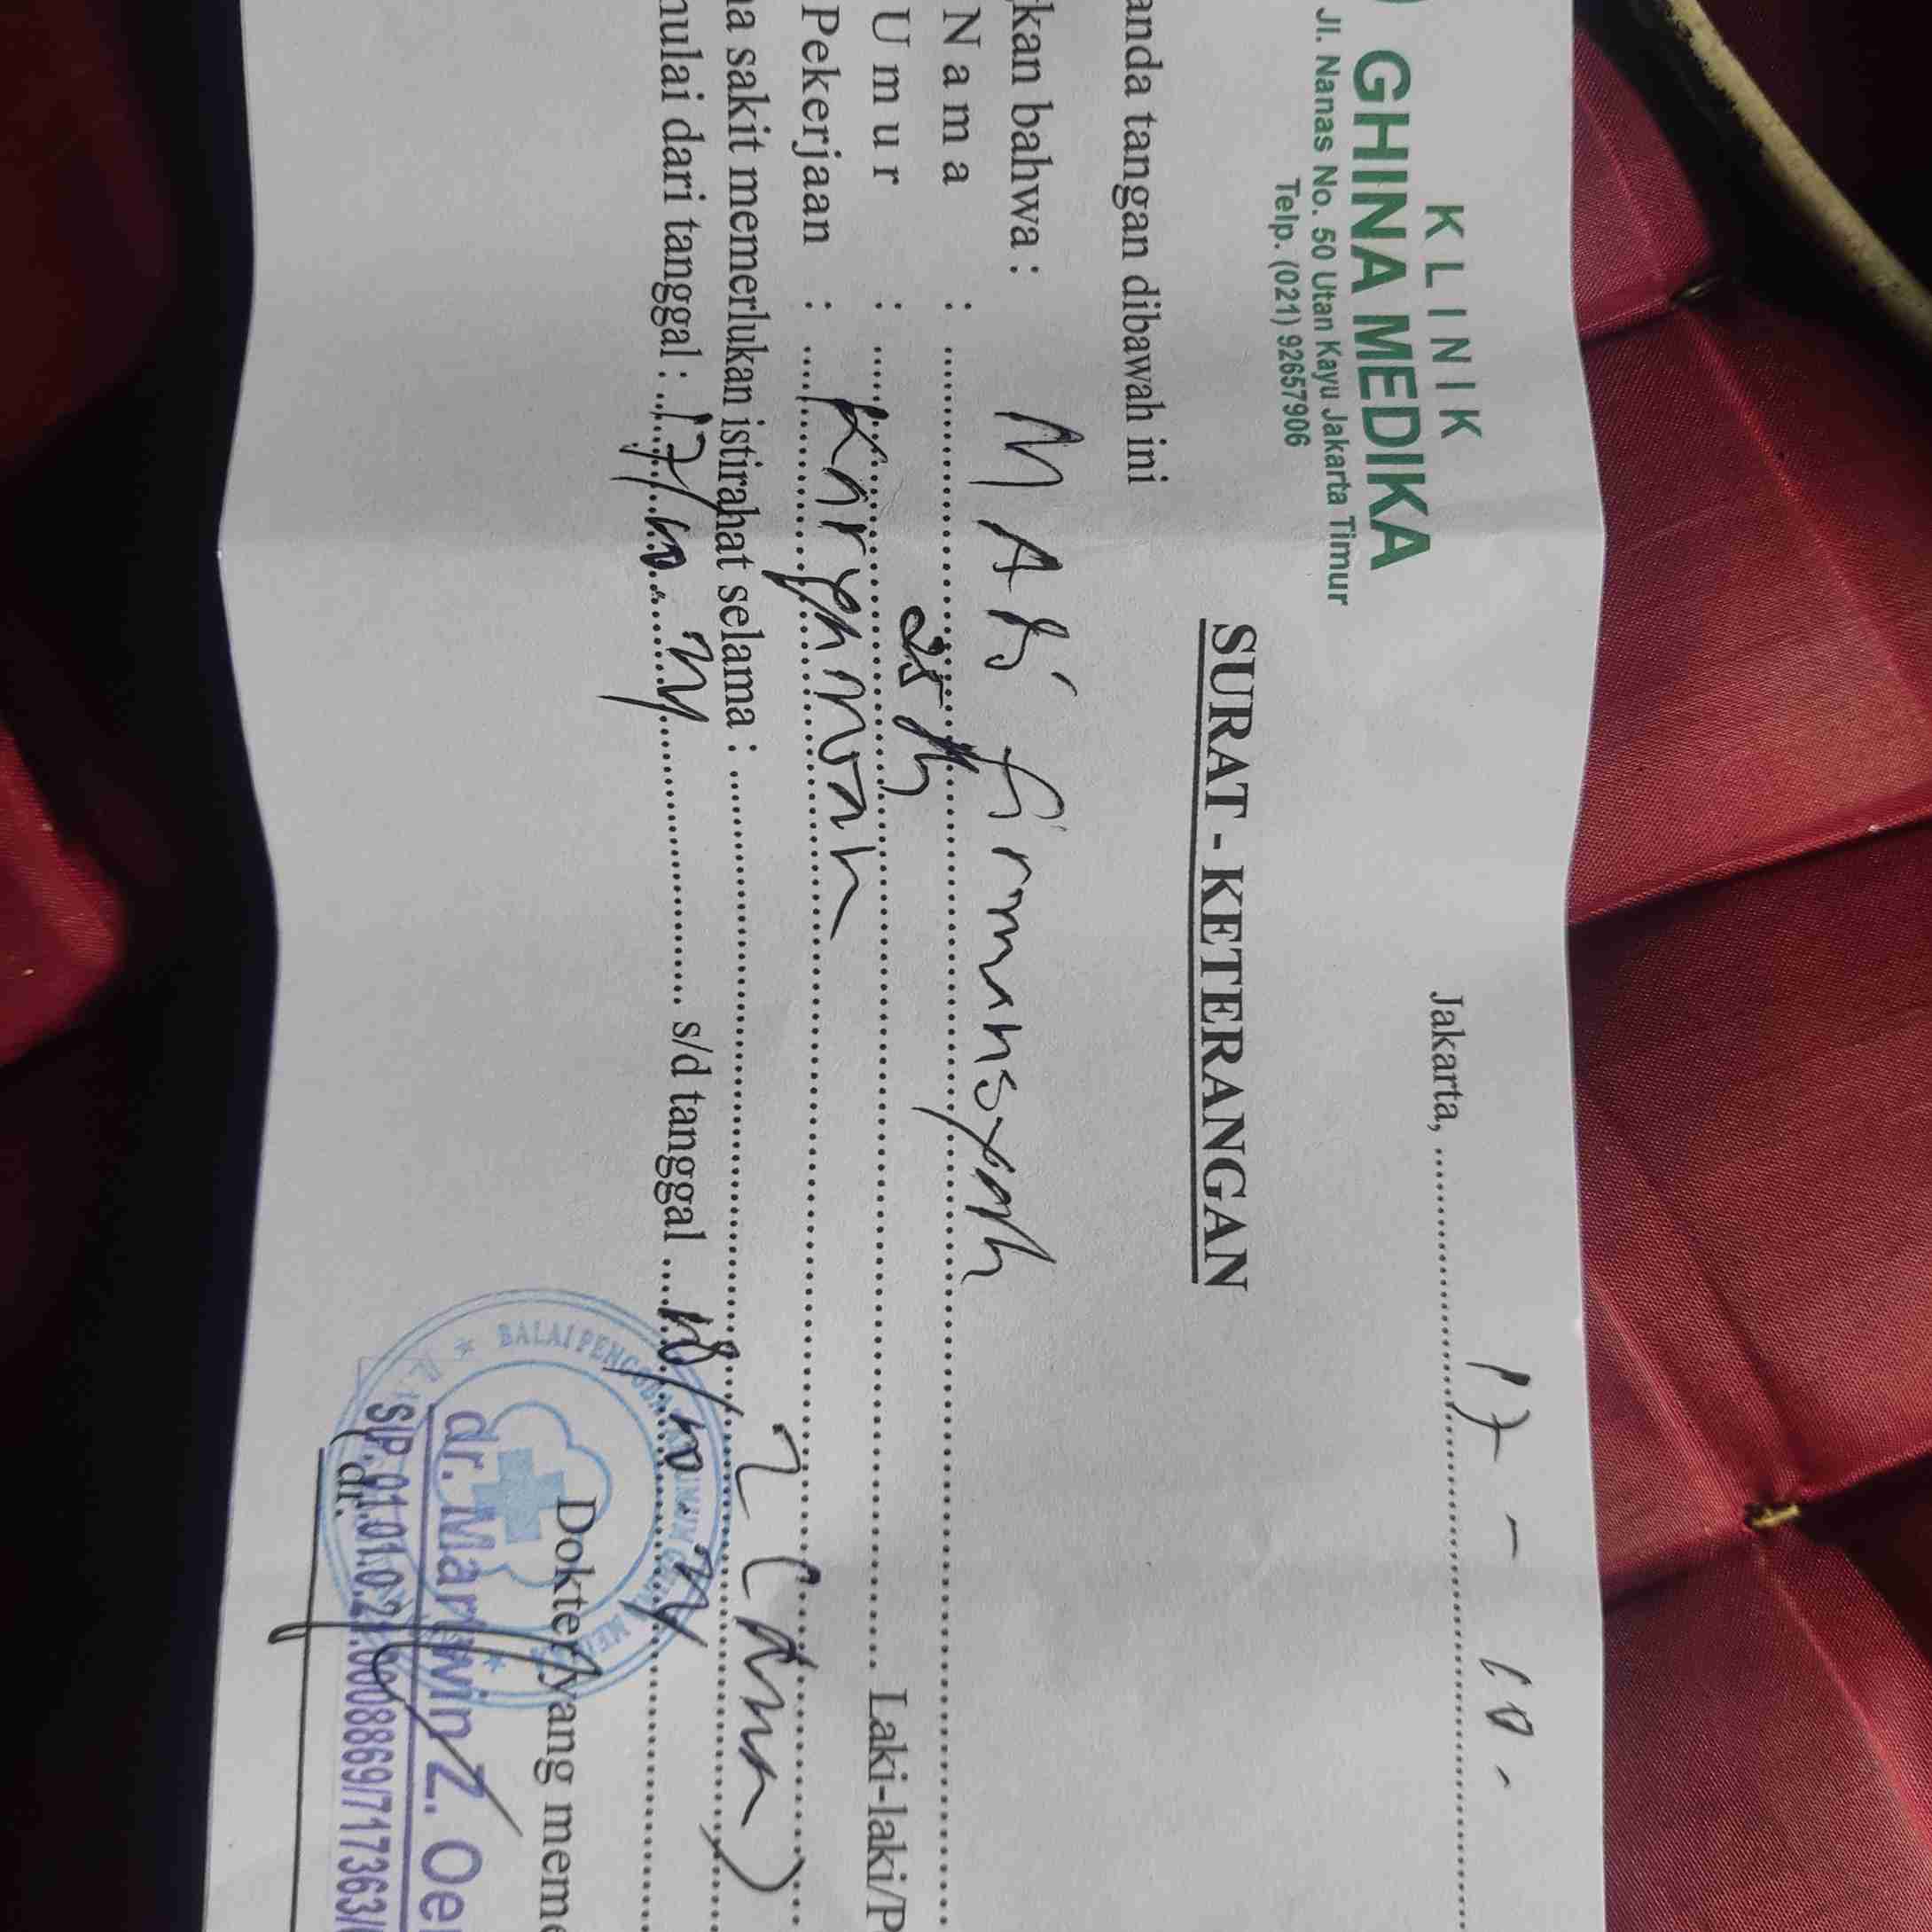 KLINIK
GHINA MEDIKA
Jl. Nanas No. 50 Utan Kayu Jakarta Timur
Telp. (021) 92657906
Jakarta, 17 - 10 -
SURAT - KETERANGAN
anda tangan dibawah ini
kan bahwa :
Nama : firmansyah
Umur : 25 th Laki-laki/P
Pekerjaan : Karyawan
a sakit memerlukan istirahat selama : 2 (dua)
nulai dari tanggal : 17/10 s/d tanggal 18/10
Dokter yang meme
BALAI PENGOBATAN UMUM GHINA MEDIKA
dr. Marlwin Z. Oe
SIP.01.01.02.0008869/717363/
(dr.